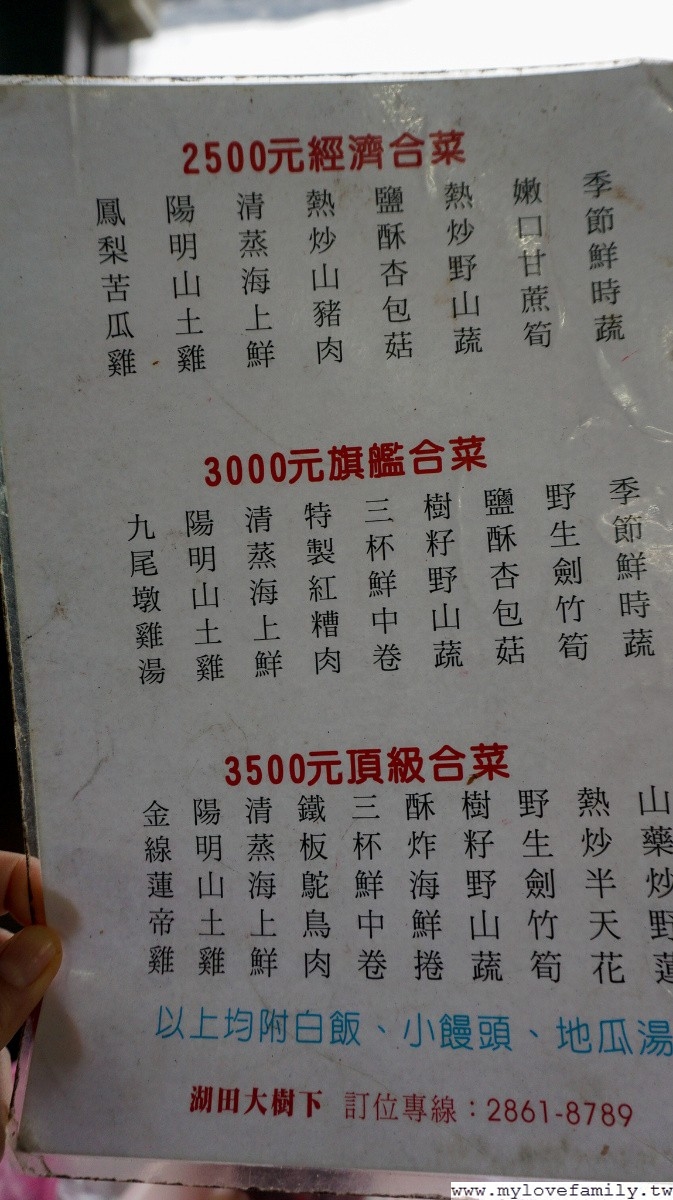 2500元經濟合菜
季節鮮時蔬
嫩口甘蔗筍
熱炒野山蔬
鹽酥杏包菇
熱炒山豬肉
清蒸海上鮮
陽明山土雞
鳳梨苦瓜雞
3000元旗艦合菜
季節鮮時蔬
野生劍竹筍
鹽酥杏包菇
樹籽野山蔬
三杯鮮中卷
特製紅糟肉
清蒸海上鮮
陽明山土雞
九尾墩雞湯
3500元頂級合菜
山藥炒野蓮
熱炒半天花
野生劍竹筍
樹籽野山蔬
酥炸海鮮捲
三杯鮮中卷
鐵板鴕鳥肉
清蒸海上鮮
陽明山土雞
金線蓮帝雞
以上均附白飯、小饅頭、地瓜湯
湖田大樹下 訂位專線：2861-8789
www.mylovefamily.tw